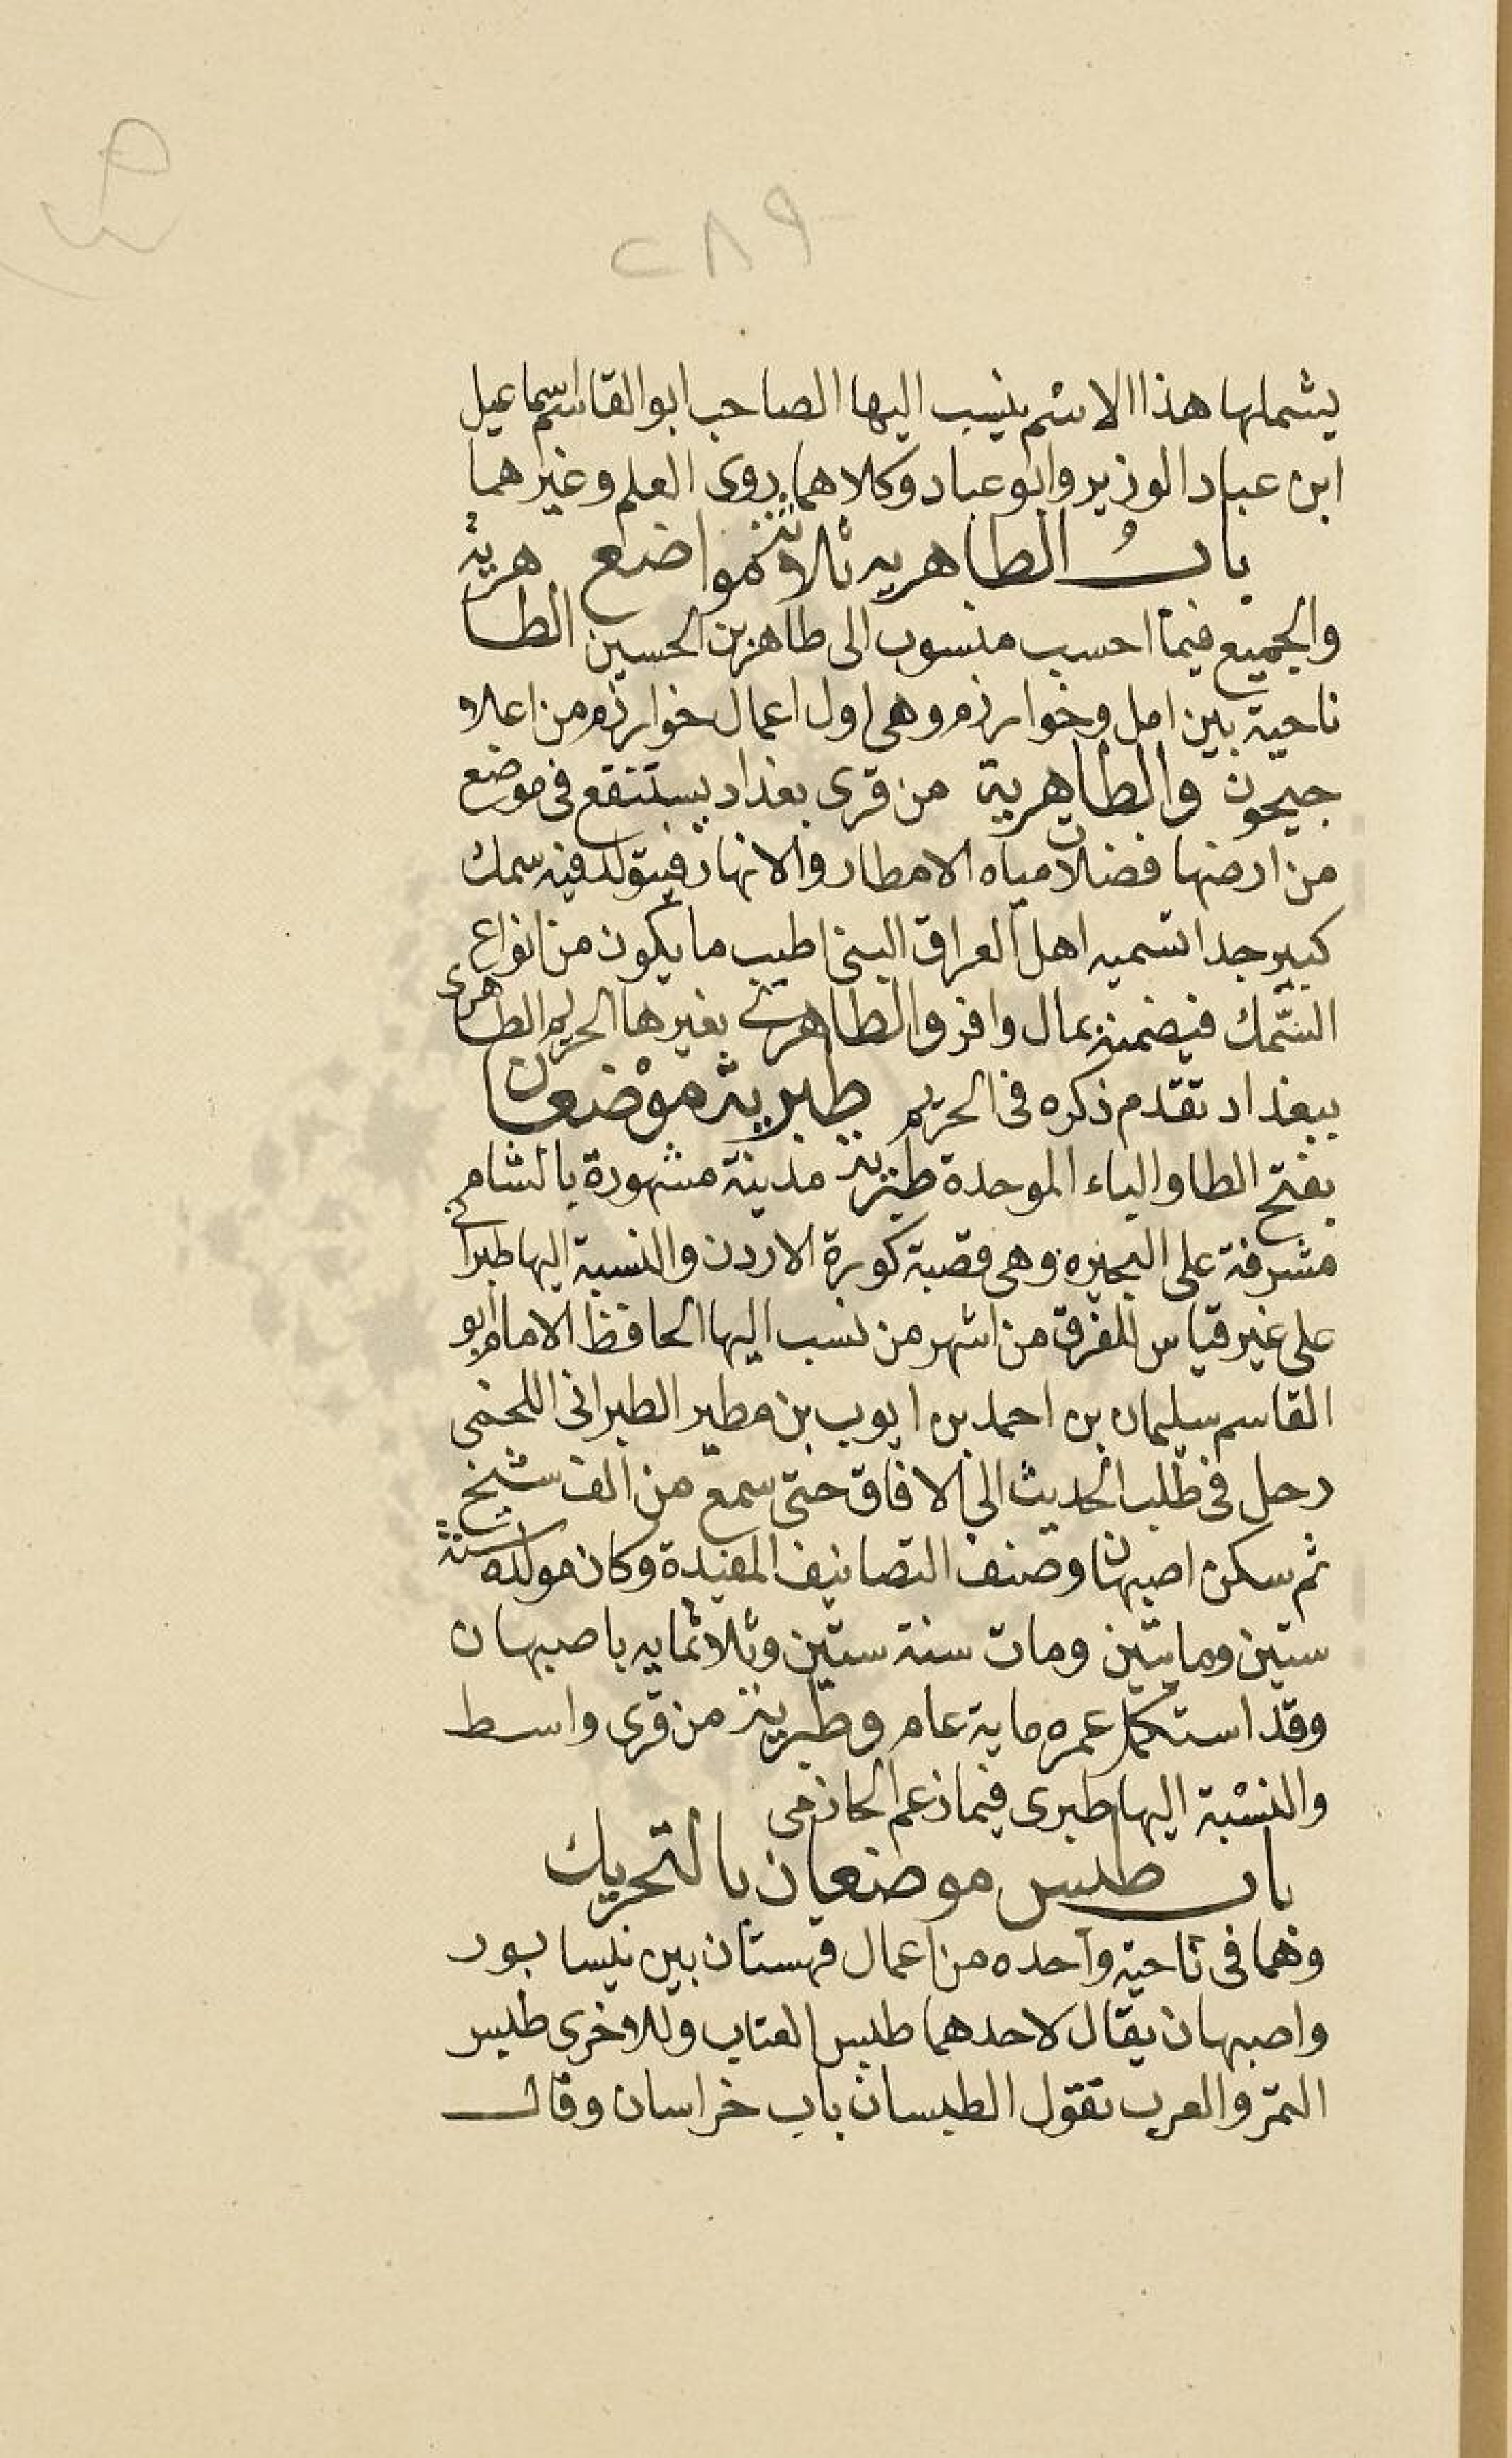 ٢٨٩
يشملها هذا الاسم ينسب اليها الصاحب ابو القاسم اسماعيل
ابن عباد الوزير وابو عباد وكلاهما روى العلم وغيرهما
باب الطاهرية ثلاثة مواضع
والجميع فيما احسب منسوب الى طاهر بن الحسين الطاهرية
ناحية بين امل وخوارزم وهي اول اعمال خوارزم من اعلا
جيحون والطاهرية من قرى بغداد يستنقع في موضع
من ارضها فضلات مياه الامطار والانهار فيتولد فيه سمك
كبير جدا تسميه اهل العراق البني اطيب ما يكون من انواع
السمك فيضمن بمال وافر والطاهرية بغيرها الحريم الطاهرى
ببغداد تقدم ذكره في الحريم طبرية موضعان
بفتح الطا والباء الموحدة طبرية مدينة مشهورة بالشام
مشرفة على البحيره وهي قصبة كورة الاردن والنسبة اليها طبراني
على غير قياس للفرق من اشهر من نسب اليها الحافظ الامام ابو
القاسم سليمان بن احمد بن ايوب بن مطير الطبراني اللخمي
رحل في طلب الحديث الى الافاق حتى سمع من الف شيخ
ثم سكن اصبهان وصنف التصانيف المفيدة وكان مولده سنة
ستين ومايتين ومات سنة ستين وثلاثمايه باصبهان
وقد استكمل عمره ماية عام وطبرية من قرى واسط
والنسبة اليها طبرى فيما زعم الحازمى
باب طبس موضعان بالتحريك
وهما في ناحية واحده من اعمال قهستان بين نيسابور
واصبهان يقال لاحدهما طبس العناب وللاخرى طبس
التمر والعرب تقول الطبسان باب خراسان وقال